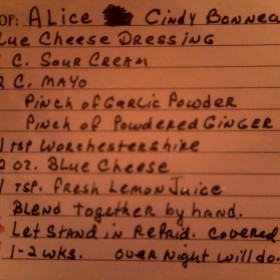 OF: ALICE CINDY BONNEC
LUE CHEESE DRESSING
C. SOUR CREAM
C. MAYO
PINCH OF GARLIC POWDER
PINCH OF POWDERED GINGER
1 TSP WORCHESTERSHIRE
2 OZ. BLUE CHEESE
1 TSP. FRESH LEMON JUICE
BLEND TOGETHER BY HAND.
LET STAND IN REFRID. COVERED
1-2 WKS. OVER NIGHT WILL DO.